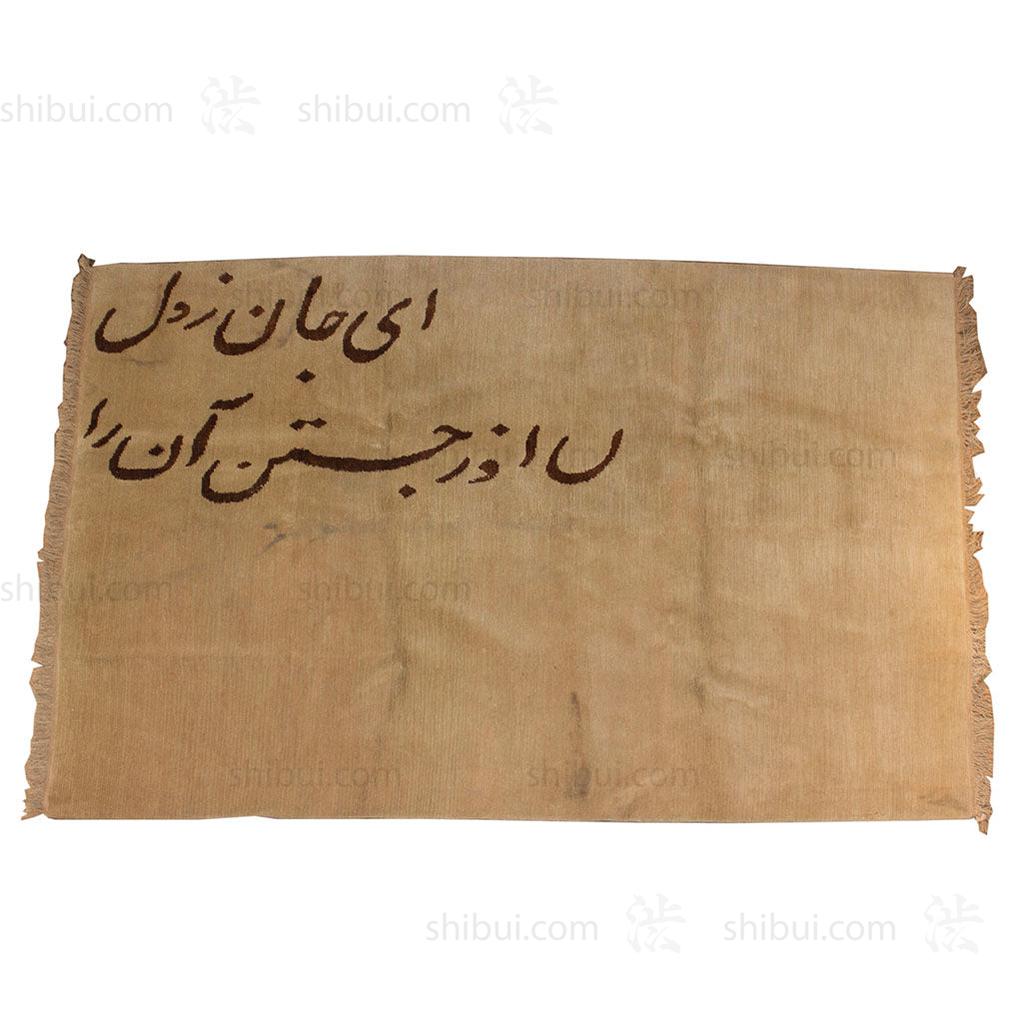 shibui.com 渋 shibui.com 渋
ای جان ز دل
shibui.com
جستن آن را
shibui.com
shibui.com shibui.com
shibui.com shibui.com
shibui.com 渋 shibui.com 渋